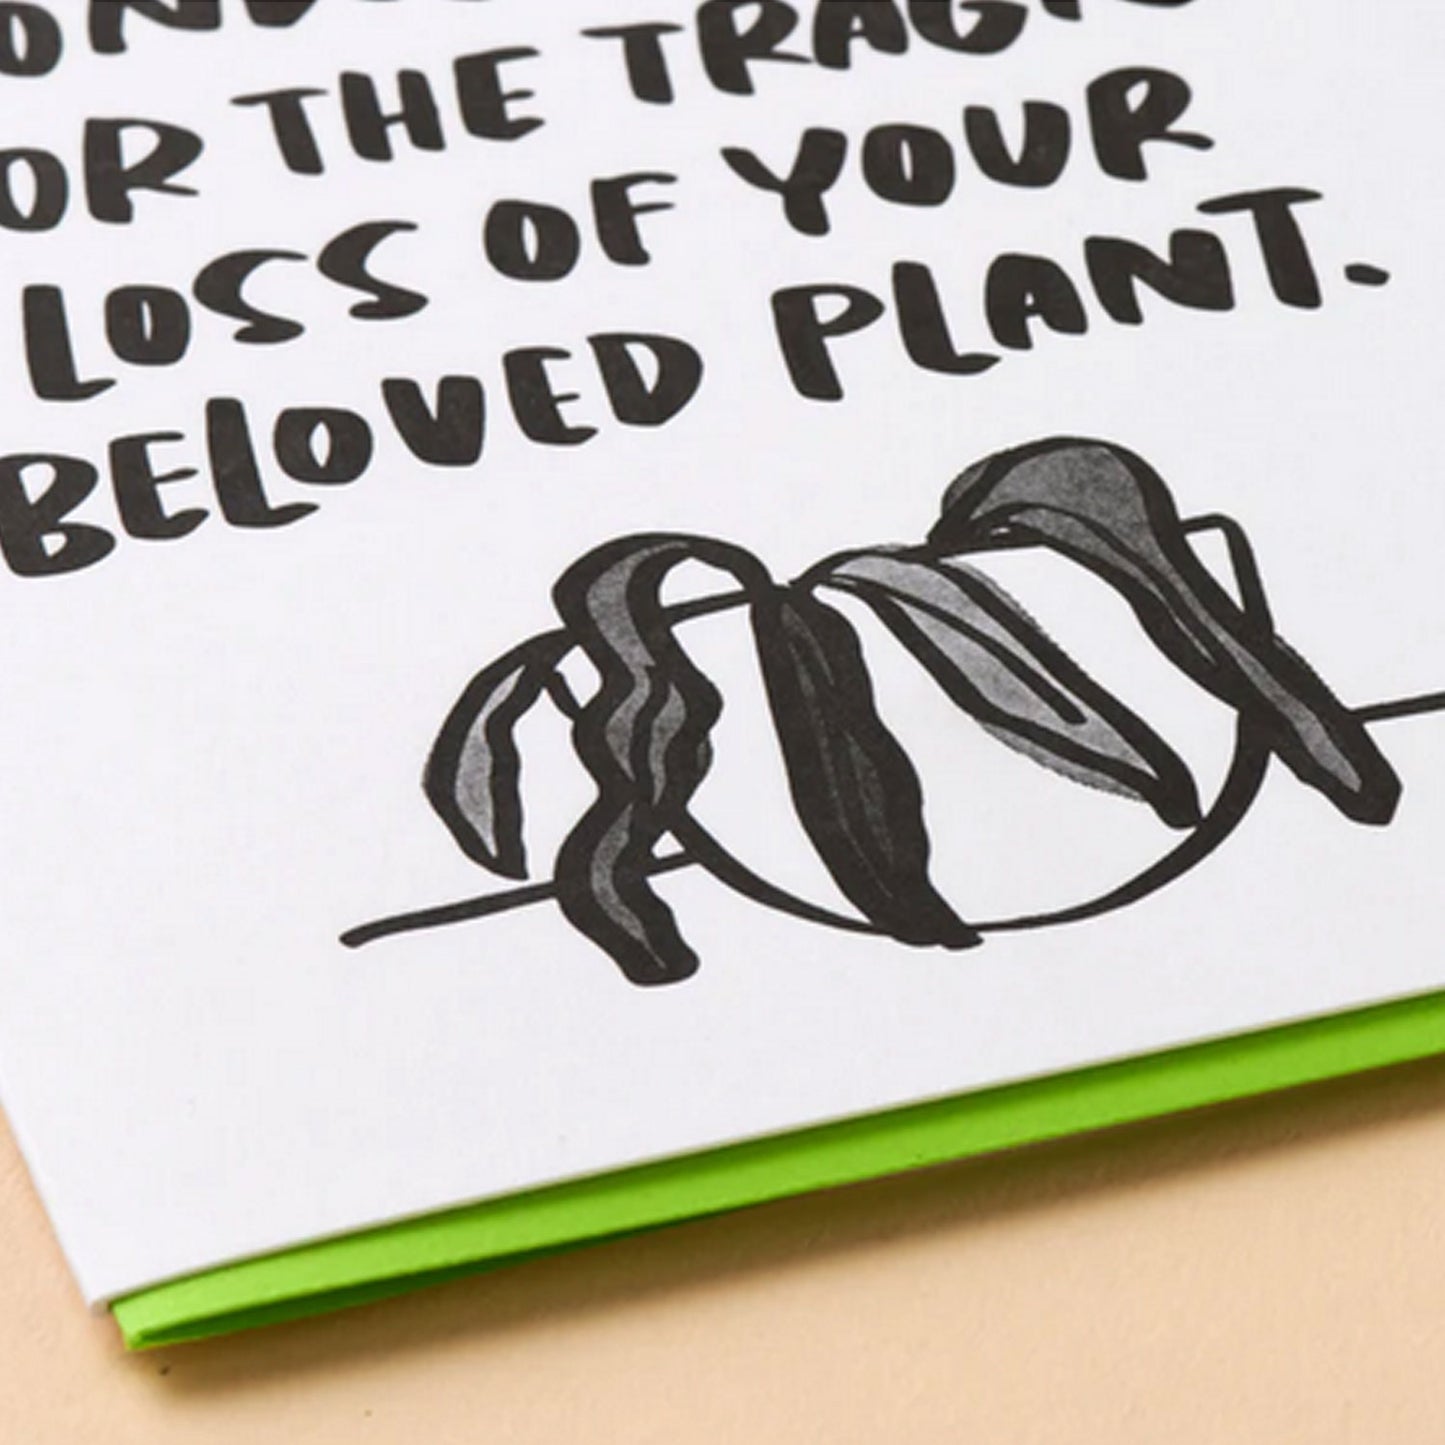 OR THE TRAGIC
LOSS OF YOUR
BELOVED PLANT.